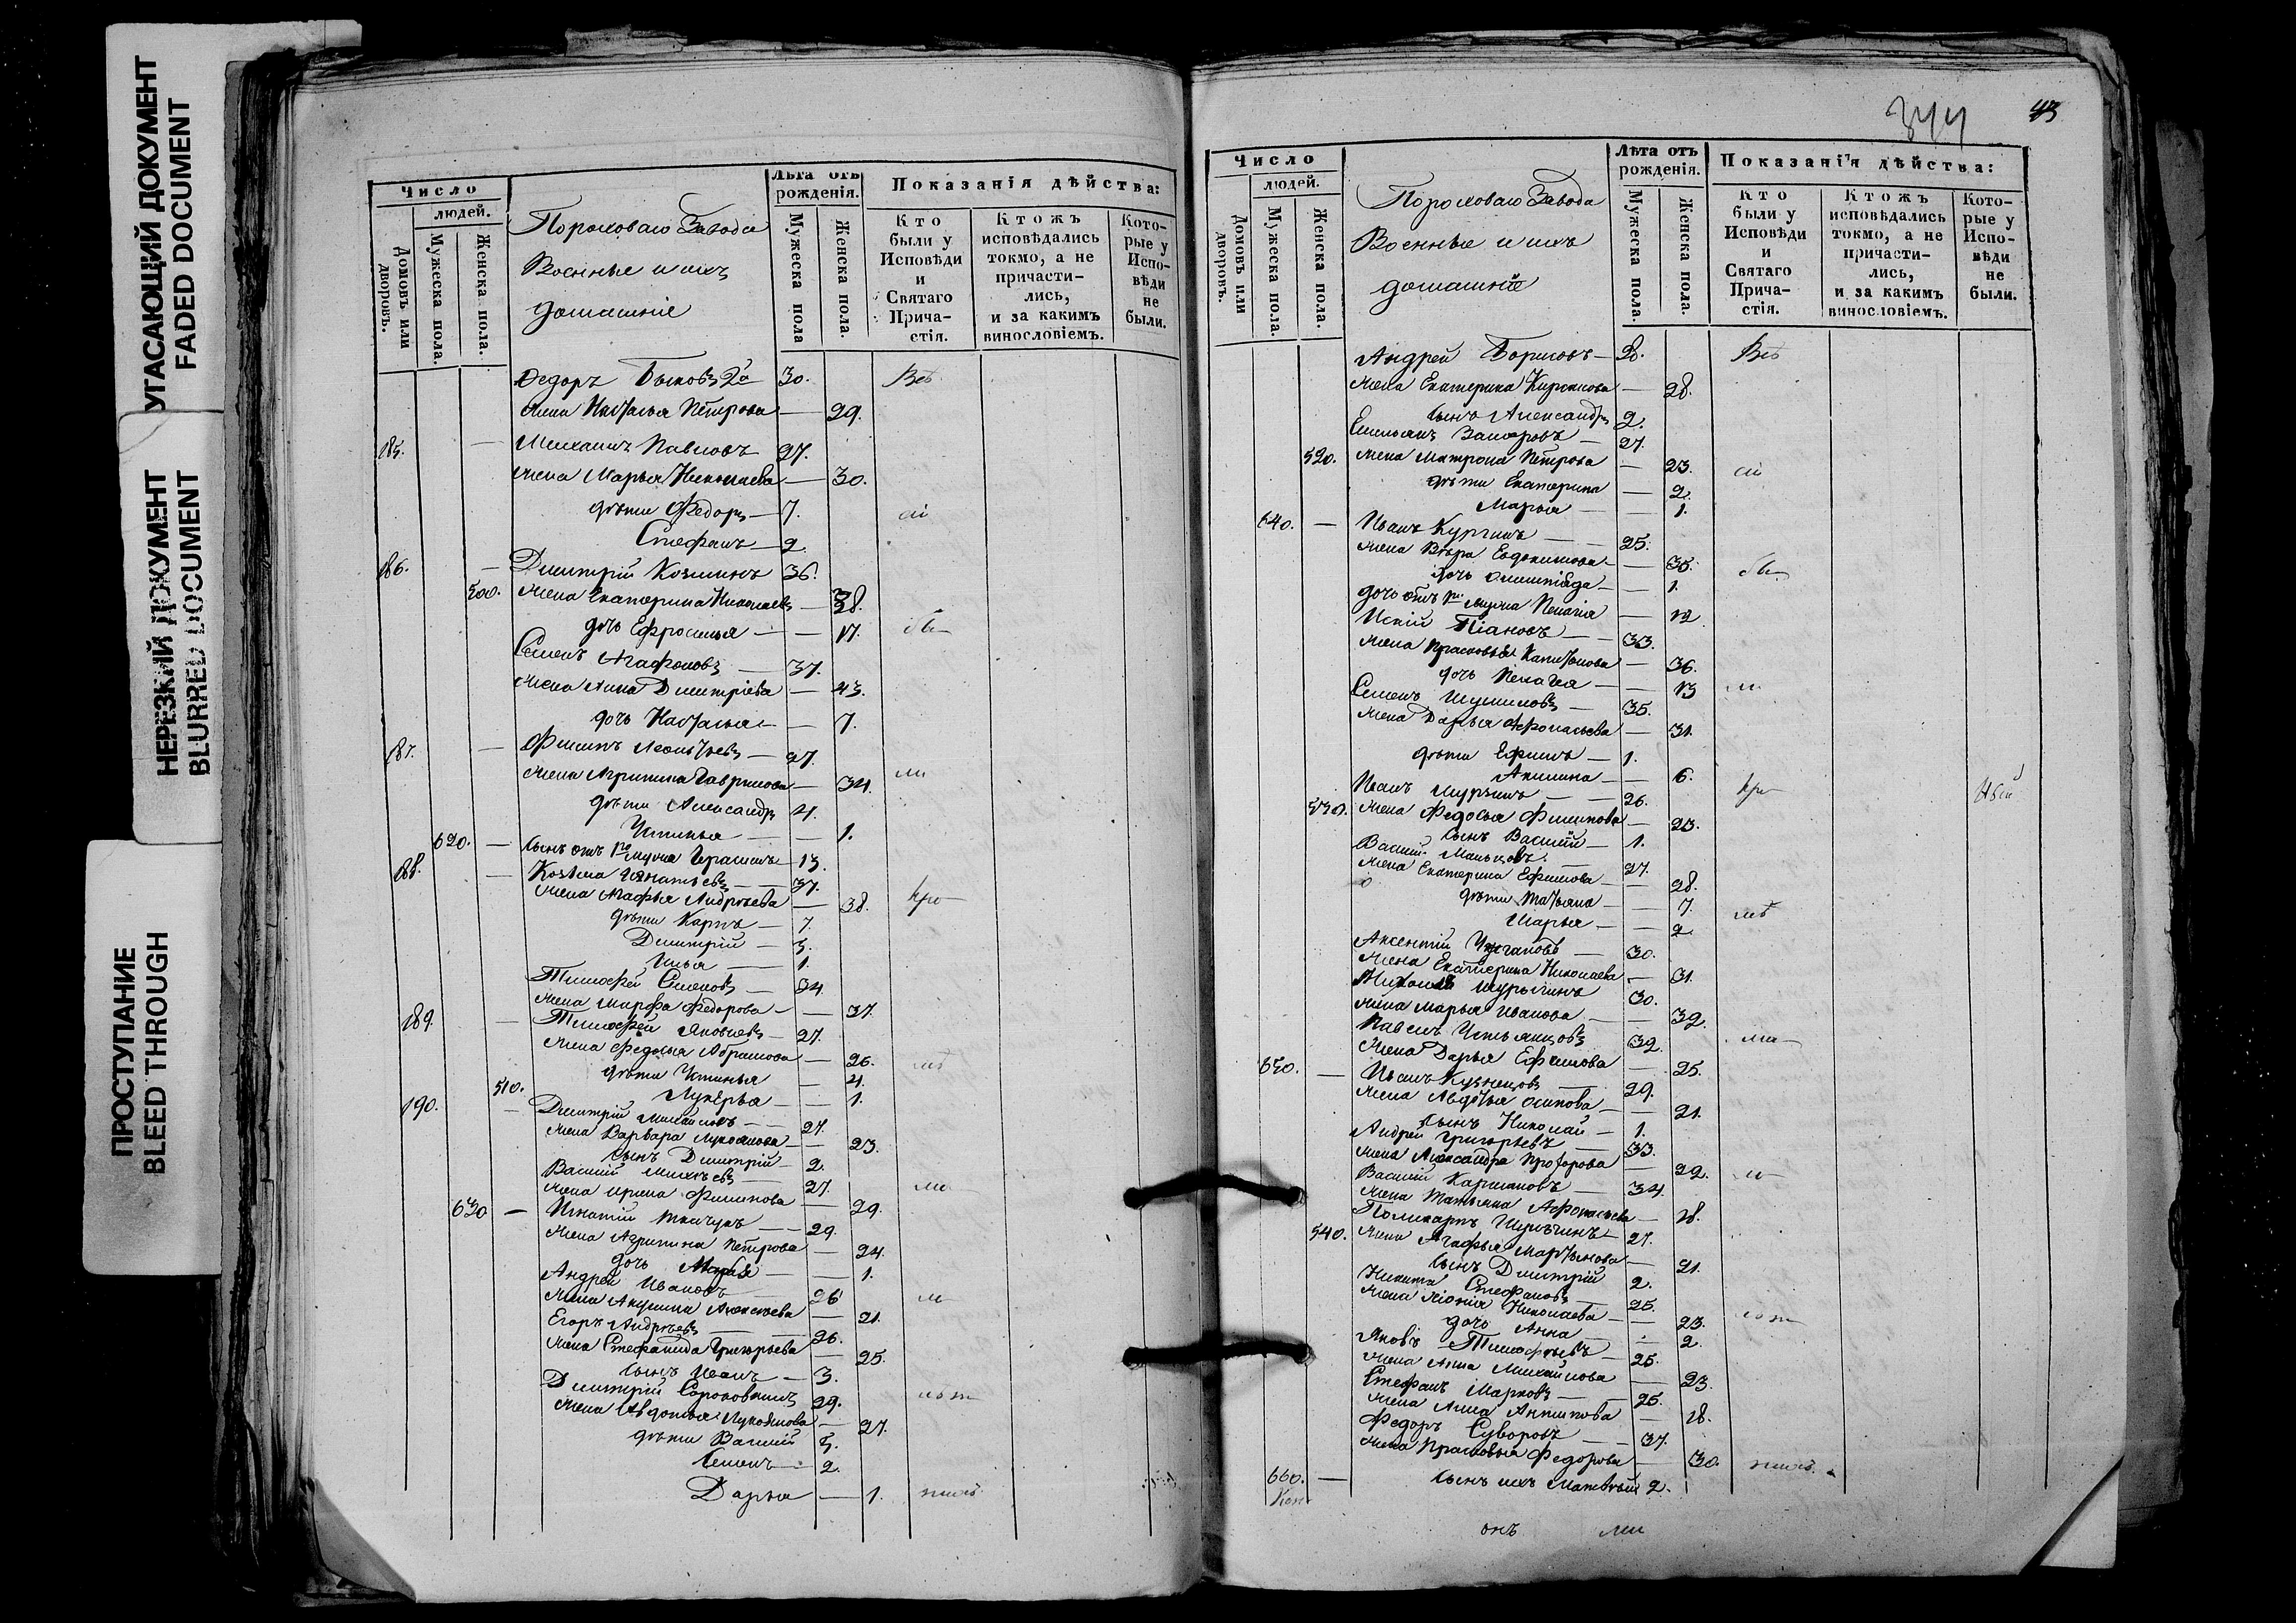 УГАСАЮЩИЙ ДОКУМЕНТ
FADED DOCUMENT
НЕРЕЗКИЙ ДОКУМЕНТ
BLURRED DOCUMENT
ПРОСТУПАНИЕ
BLEED THROUGH
Число
людей.
Домовъ или дворовъ.
Мужеска пола.
Женска пола.
Пороховаго Завода
Военные и ихъ
домашніе
Лѣта отъ рожденія.
Мужеска пола
Женска пола.
Показанія дѣйства:
Кто были у Исповѣди и Святаго Прича-стія.
Ктожъ исповѣдались токмо, а не причасти-лись, и за какимъ винословіемъ.
Кото-рые у Испо-вѣди не были.
Федоръ Быковъ 2й 30. Всѣ
жена Настасья Петрова — 29.
185. — Павловъ 27.
жена Марья Николаева — 30.
дѣти Федоръ — 7.
Стефанъ — 2.
186. — Дмитрій Козминъ 36.
500. жена Екатерина Николаева — 38.
дочь Ефросинья — — 17.
Семенъ Агафоновъ — 37.
жена Анна Дмитріева — 43.
дочь Настасья — 7.
187. — Филипъ Леонтьевъ — 27.
жена Агрипина Гаврилова — 34.
дѣти Александръ 4.
Устинья — — 1.
620. — сынъ отъ 1го мужа Герасимъ — 13.
188. — Козьма Игнатьевъ — 37.
жена Агафья Андреева — 38.
дѣти Карпъ — 7.
Дмитрій — 3.
Илья — 1.
Тимофей Семеновъ — 34
жена Марфа Федорова — — 37.
189. — Тимофей Яковлевъ — 27.
жена Федосья Абрамова — 26.
дѣти Устинья — 4.
510. Лукерья — — 1.
190. — Дмитрій Михайловъ — 27.
жена Варвара Лукоянова — 23.
сынъ Дмитрій — 2.
Василій 27.
жена Ирина Филипова — 29.
630 — Игнатій Ткачукъ — 29.
жена Агрипина Петрова — 24.
дочь Марья — — 1.
Андрей Ивановъ — 26
жена Акулина Алексеева — 21.
Егоръ Андреевъ — 26.
жена Стефанида Григорьева — 25.
сынъ Иванъ — 3.
Дмитрій 29.
жена Авдотья Лукоянова — 27.
дѣти Василій 5.
Семенъ — 2.
Дарья — 1.
344
43
Число
людей.
Домовъ или дворовъ.
Мужеска пола.
Женска пола.
Пороховаго Завода
Военные и ихъ
домашніе
Лѣта отъ рожденія.
Мужеска пола.
Женска пола.
Показанія дѣйства:
Кто были у Исповѣди и Святаго Прича-стія.
Ктожъ исповѣдались токмо, а не причасти-лись, и за какимъ винословіемъ.
Кото-рые у Испо-вѣди не были.
Андрей Борисовъ — Всѣ
жена Екатерина — 28.
сынъ Александръ 2.
Емельянъ Захаровъ — 27.
520. жена Матрона Петрова — 23.
дѣти Екатерина — 2.
Марья — 1.
640. — Иванъ 25.
жена Вѣра Евдокимова — 35.
дочь Олимпіада — 1.
дочь отъ 1го мужа Пелагія — 12
33.
жена Прасковья Капитонова — 36.
дочь Пелагея — 13
Семенъ Шумиловъ — 35.
жена Дарья Афонасьева — 31.
дѣти Ефимъ — 1.
Акилина — — 6.
Иванъ — 26.
530. жена Федосья Филипова — 23.
сынъ Василій — 1.
Василій 27.
жена Екатерина Ефимова — 28.
дѣти Татьяна — — 7.
Марья — — 2
Аксентій — 30.
жена Екатерина Николаева — 31.
30.
жена Марья Иванова — 32.
Павелъ 32.
жена Дарья Ефимова — 25.
650. — Иванъ Кузнецовъ — 29.
жена Авдотья Осипова — 21.
сынъ Николай — 1.
Андрей Григорьевъ — 33.
жена Александра Прохорова — 22.
Василій Каргановъ — 34.
жена Татьяна Афонасьева — 18.
Поликарпъ 27.
540. жена Агафья Мартынова — 21.
сынъ Дмитрій 2.
Никита Стефановъ — 25.
жена Николаева — 23.
дочь Анна — 2.
Яковъ Тимофеевъ — 25.
жена Анна Михайлова — 23.
Стефанъ Марковъ — 25.
жена Анна Антипова — 18.
Федоръ Суворовъ — 37.
жена Прасковья Федорова — 30.
660. — сынъ ихъ Матвѣй 2.